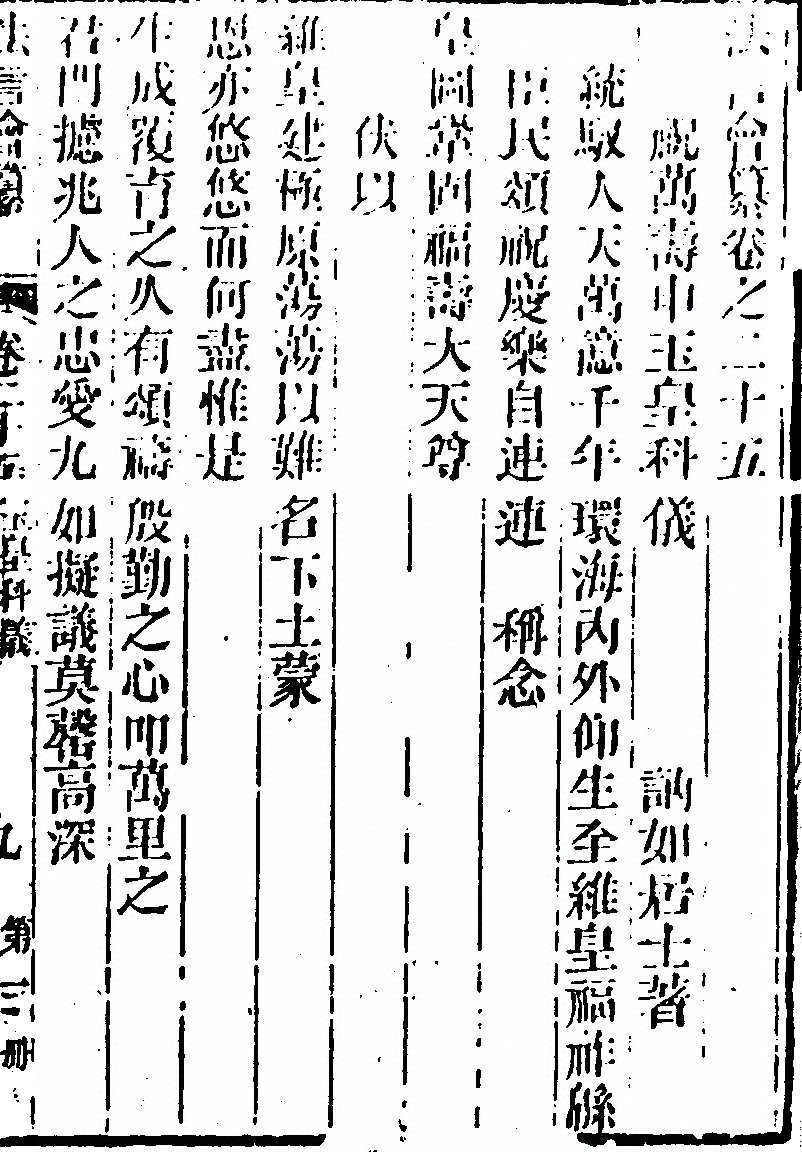 法言會纂卷之二十五
祝萬壽申玉皇科儀 訥如居士著
統馭人天萬億千年環海內外仰生至維皇福祚緜
臣民頌祝慶樂自連連 稱念
皇圖鞏固福壽大天尊
伏以
維皇建極原蕩蕩以難名下土蒙
恩亦悠悠而何盡惟是
生成覆育之久有頌禱殷勤之心叩萬里之
君門攄兆人之忠愛九如擬議莫罄高深
法言會纂 卷二十五 玉皇科儀 九 第 三 册